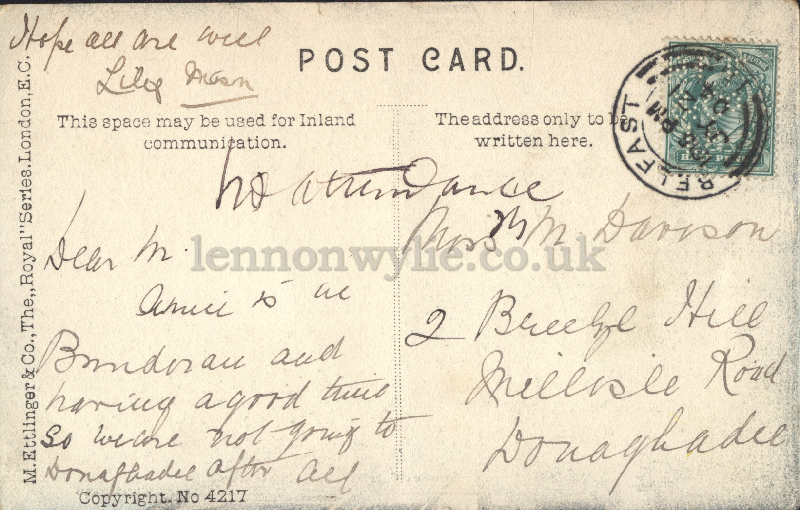 Hope all are well
Lily Mason
POST CARD.
This space may be used for Inland
communication.
The address only to be
written here.
BELFAST
PM
JY 21
04
M. Ettlinger & Co., The „Royal" Series. London, E.C.
No attendance
Dear M.
Annie is in
Bundoran and
having a good time
so we are not going to
Donaghadee after all
Miss M Davison
2 Breeze Hill
Millisle Road
Donaghadee
lennonwylie.co.uk
Copyright. No 4217